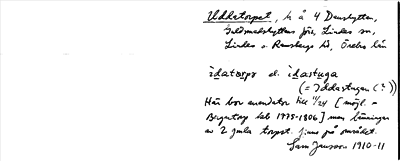 Uddatorpet, h å 4 Danshyttan,
Guldsmedshyttans förs., Lindes sn,
Lindes o. Ramsbergs hd, Örebro län
ìdatorpə el. ìdastuga
(= Iddastugan (?))
Här bor arrendator till 11/24 [möjl. =
Bergstorp 1775-1806] men lämningar
av 2 gamla torpst. finns på området.
Sam Jansson 1910-11